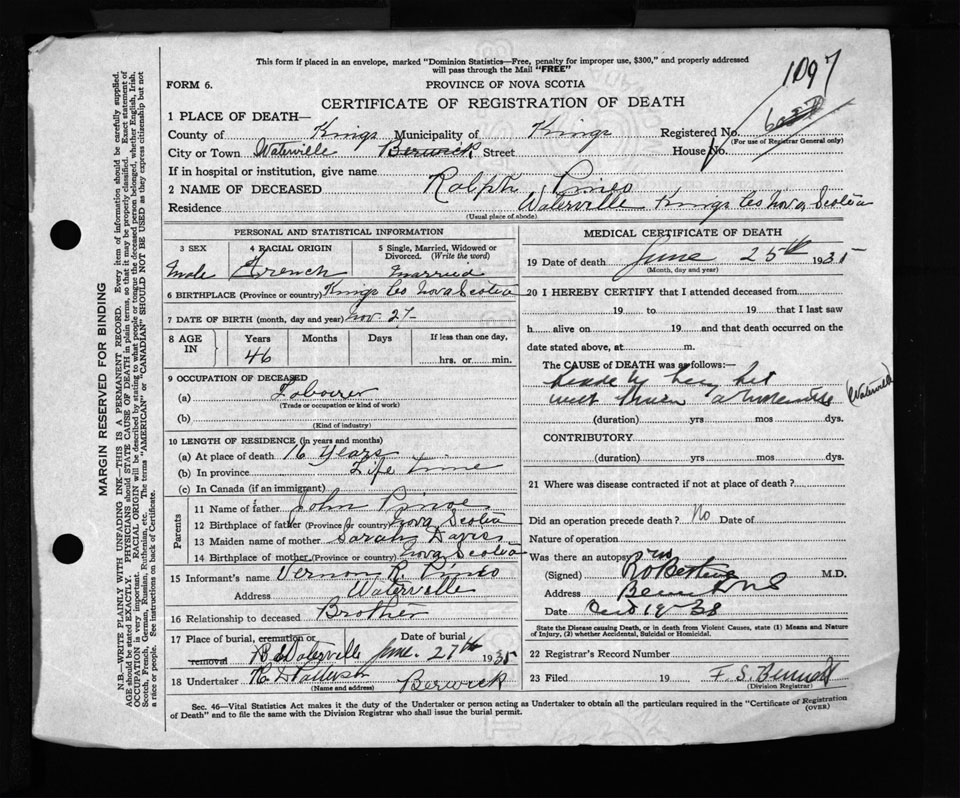 This form if placed in an envelope, marked "Dominion Statistics—Free, penalty for improper use, $300," and properly addressed
will pass through the Mail "FREE"
1097
FORM 6. PROVINCE OF NOVA SCOTIA
CERTIFICATE OF REGISTRATION OF DEATH
1 PLACE OF DEATH—
County of Kings Municipality of Kings Registered No.
(For use of Registrar General only)
City or Town Waterville Berwick Street House No.
If in hospital or institution, give name
2 NAME OF DECEASED Ralph Pineo
Residence Waterville Kings Co Nova Scotia
(Usual place of abode)
PERSONAL AND STATISTICAL INFORMATION
3 SEX 4 RACIAL ORIGIN 5 Single, Married, Widowed or
Divorced. (Write the word)
Male French Married
6 BIRTHPLACE (Province or country) Kings Co Nova Scotia
7 DATE OF BIRTH (month, day and year) Nov. 27
8 AGE IN Years Months Days If less than one day,
46 hrs. or min.
9 OCCUPATION OF DECEASED
(a) Labourer
(Trade or occupation or kind of work)
(b)
(Kind of industry)
10 LENGTH OF RESIDENCE (in years and months)
(a) At place of death 16 Years
(b) In province Life Time
(c) In Canada (if an immigrant)
Parents
11 Name of father John Pineo
12 Birthplace of father (Province or country) Nova Scotia
13 Maiden name of mother Sarah Davis
14 Birthplace of mother (Province or country) Nova Scotia
15 Informant's name Vernon R. Pineo
Address Waterville
16 Relationship to deceased Brother
17 Place of burial, cremation or removal Waterville Date of burial June 27th 1935
18 Undertaker Berwick
(Name and address)
MEDICAL CERTIFICATE OF DEATH
19 Date of death June 25th 1935
(Month, day and year)
20 I HEREBY CERTIFY that I attended deceased from
19 to 19 that I last saw
h alive on 19 and that death occurred on
date stated above, at m.
The CAUSE of DEATH was as follows:
(Waterville)
(duration) yrs mos dys.
CONTRIBUTORY
(duration) yrs mos dys.
21 Where was disease contracted if not at place of death?
Did an operation precede death? No Date of
Nature of operation
Was there an autopsy no
(Signed) M.D.
Address
Date
State the Disease causing Death, or in death from Violent Causes, state (1) Means and Nature
of Injury, (2) whether Accidental, Suicidal or Homicidal.
22 Registrar's Record Number
23 Filed 19 F. S.
(Division Registrar)
Sec. 46—Vital Statistics Act makes it the duty of the Undertaker or person acting as Undertaker to obtain all the particulars required in the "Certificate of Registration
of Death" and to file the same with the Division Registrar who shall issue the burial permit. (OVER)
MARGIN RESERVED FOR BINDING
N.B.—WRITE PLAINLY WITH UNFADING INK—THIS IS A PERMANENT RECORD. Every item of information should be carefully supplied.
AGE should be stated EXACTLY. PHYSICIANS should STATE CAUSE OF DEATH in plain terms, so that it may be properly classified. Exact statement of
OCCUPATION is very important. RACIAL ORIGIN will be described by stating to what people or tongue the deceased person belonged, whether English, Irish,
Scotch, French, German, Russian, Ruthenian, etc. The terms "AMERICAN" or "CANADIAN" SHOULD NOT BE USED as they express citizenship but not
a race or people. See instructions on back of Certificate.